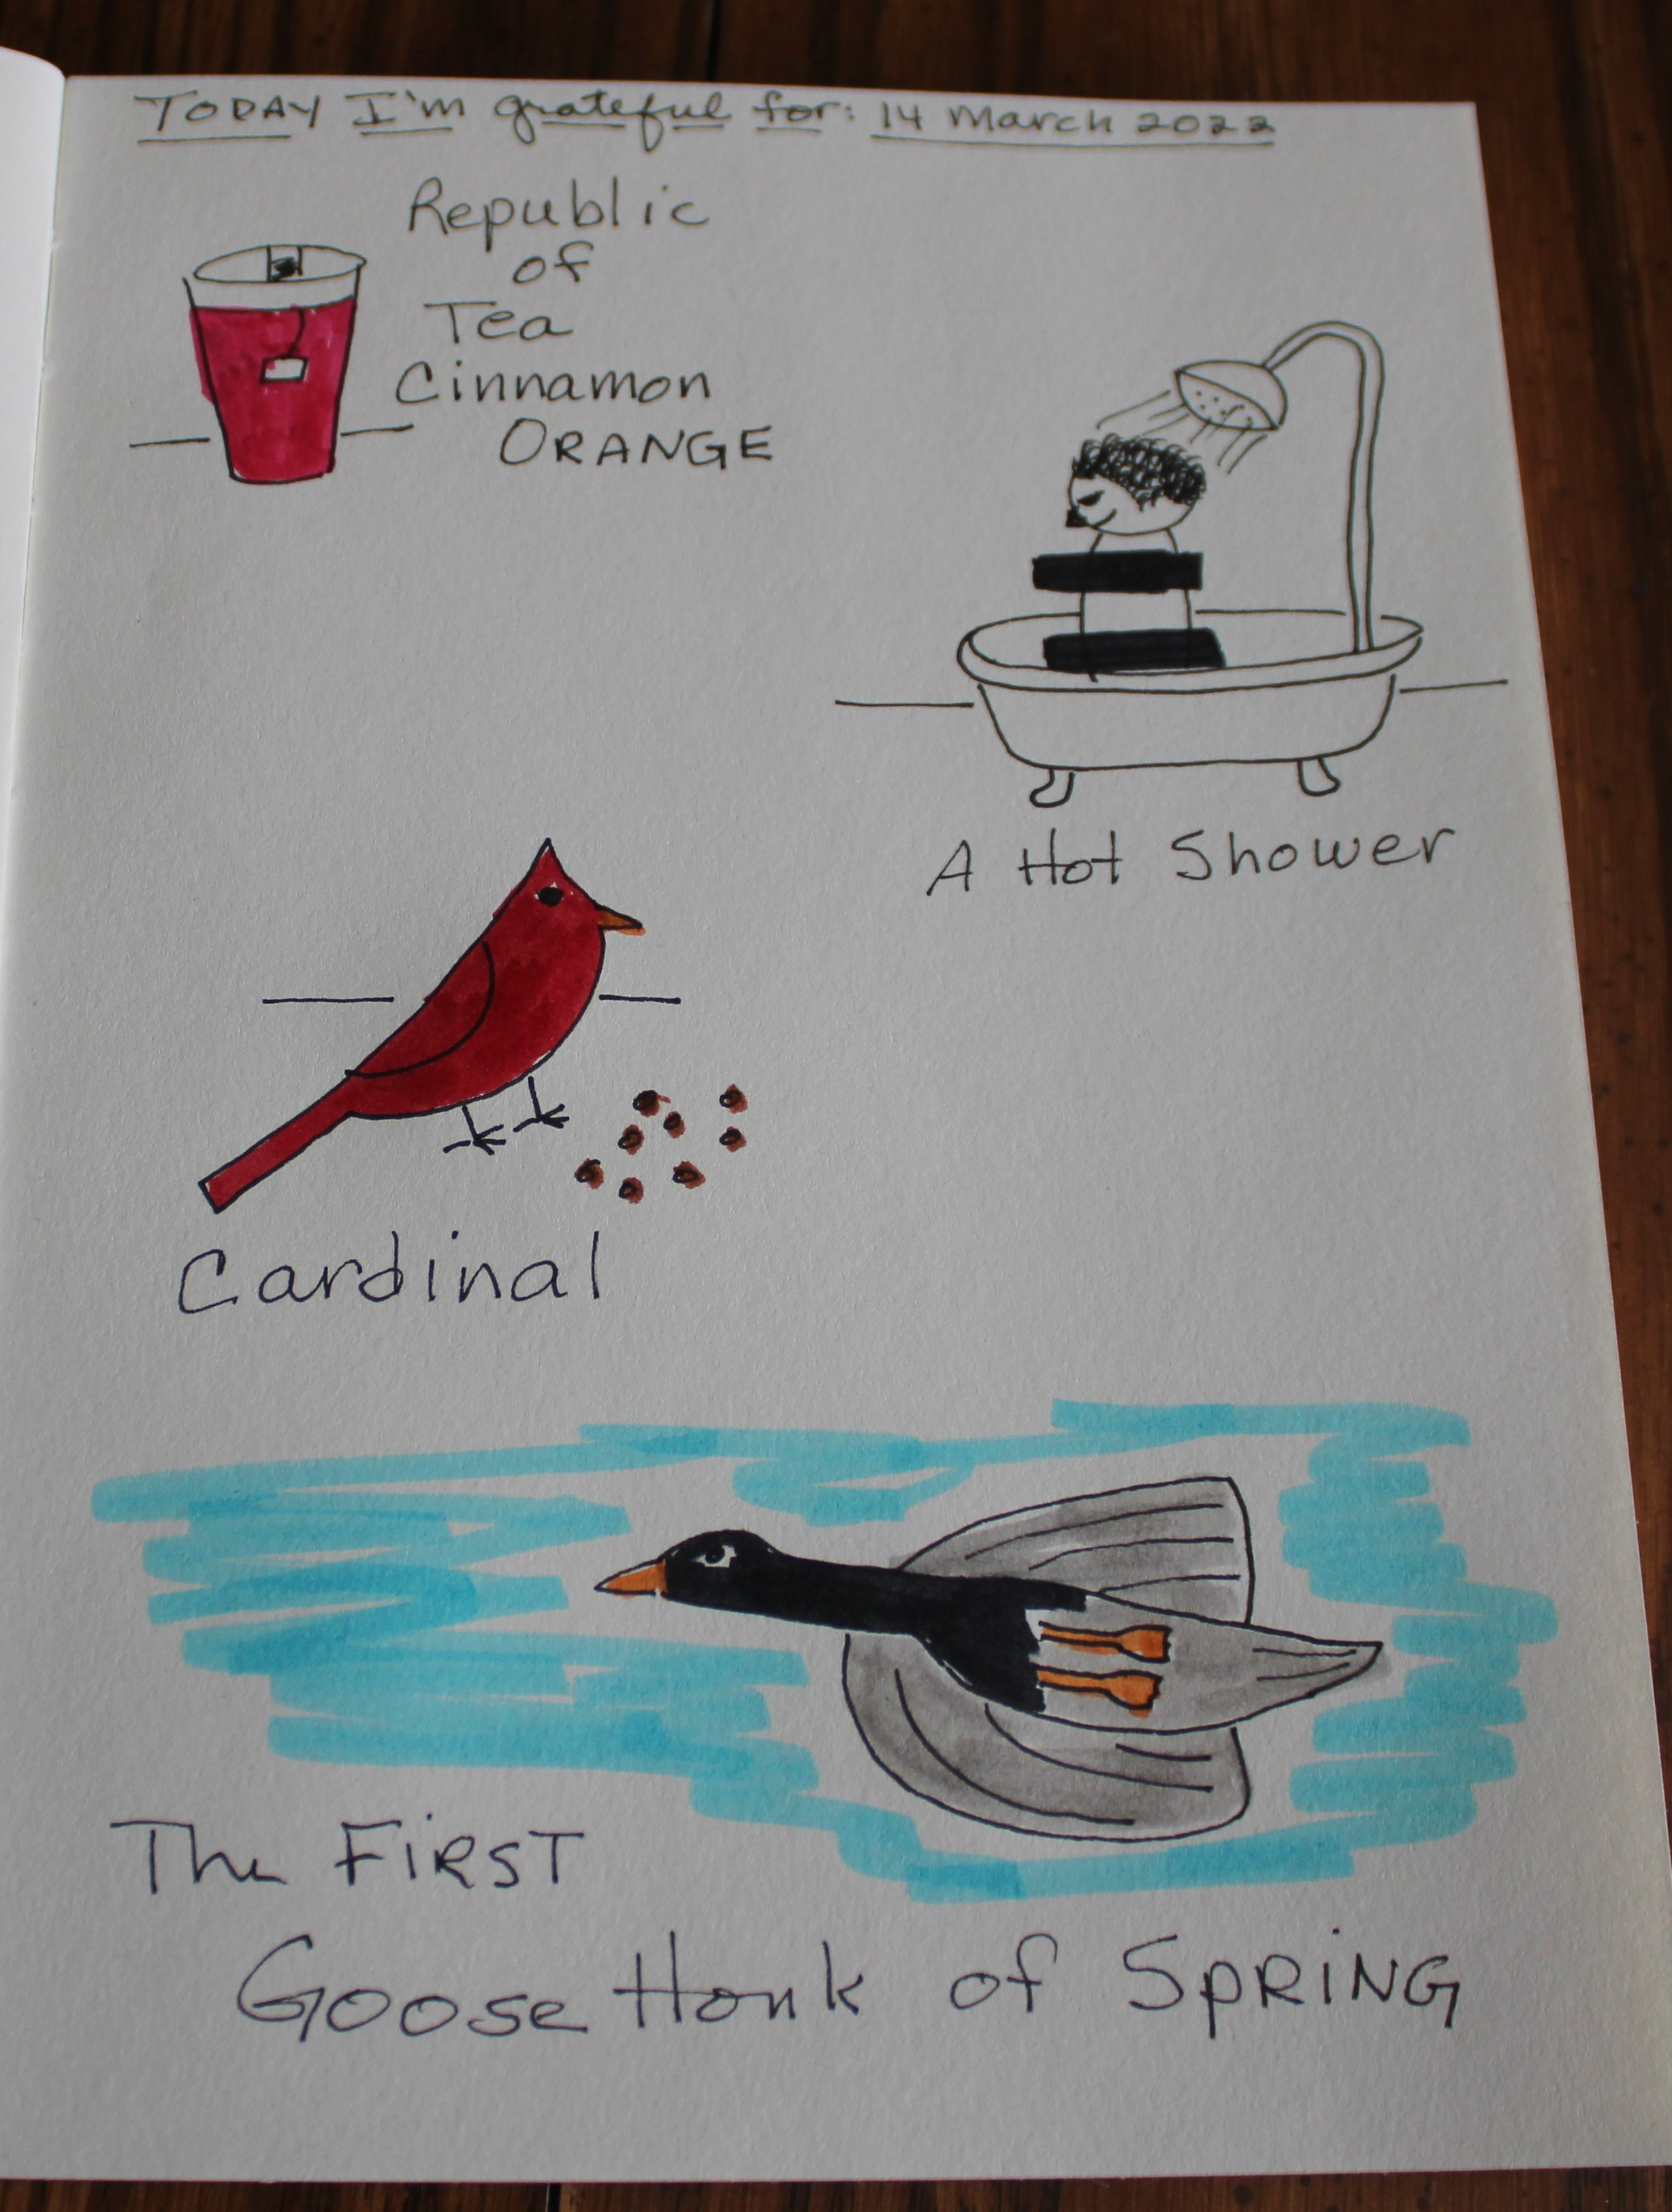 TODAY I'm grateful for: 14 March 2022
Republic
of
Tea
Cinnamon
ORANGE
A Hot Shower
Cardinal
The FIRST
Goose Honk of SPRING